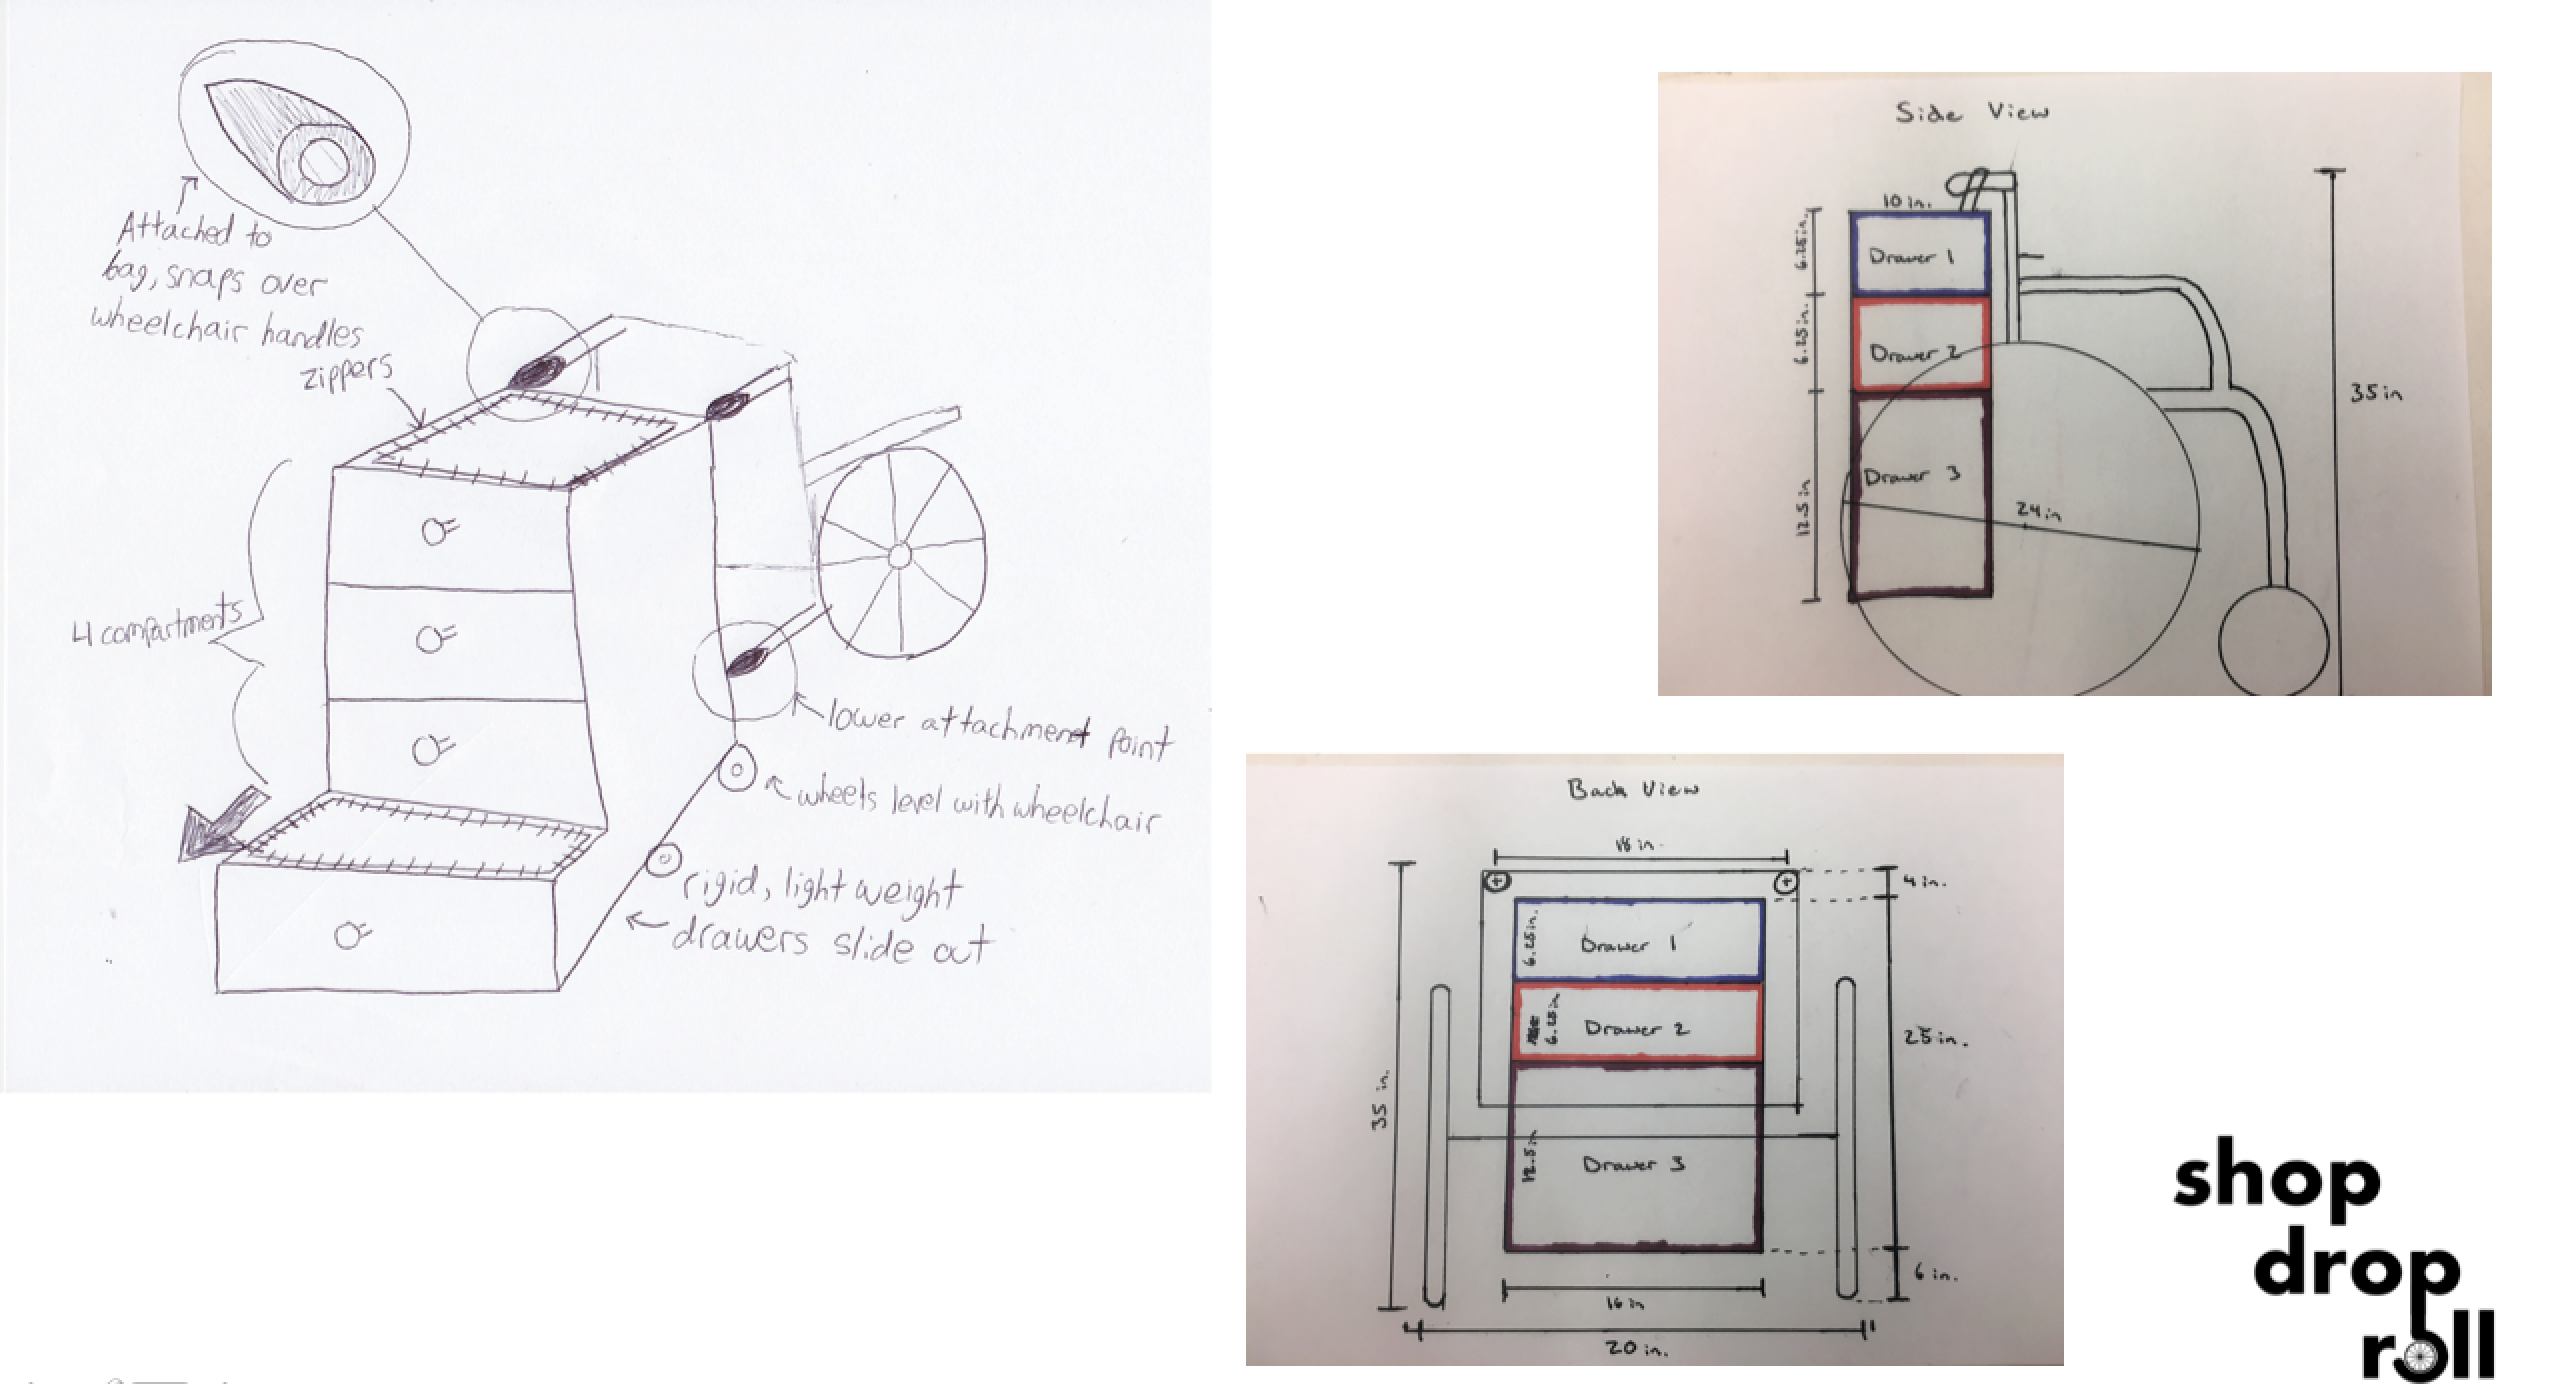 Attached to
bag, snaps over
wheelchair handles
zippers
4 compartments
lower attachment point
wheels level with wheelchair
rigid, light weight
drawers slide out
Side View
10 in.
6.25 in.
Drawer 1
6.25 in.
Drawer 2
35 in
Drawer 3
12.5 in
24 in
Back View
18 in.
4 in.
6.25 in.
Drawer 1
6.25 in.
Drawer 2
25 in.
35 in.
12.5 in
Drawer 3
6 in.
16 in
20 in.
shop
drop
roll